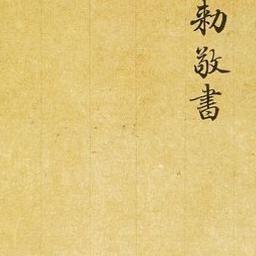 勅敬書